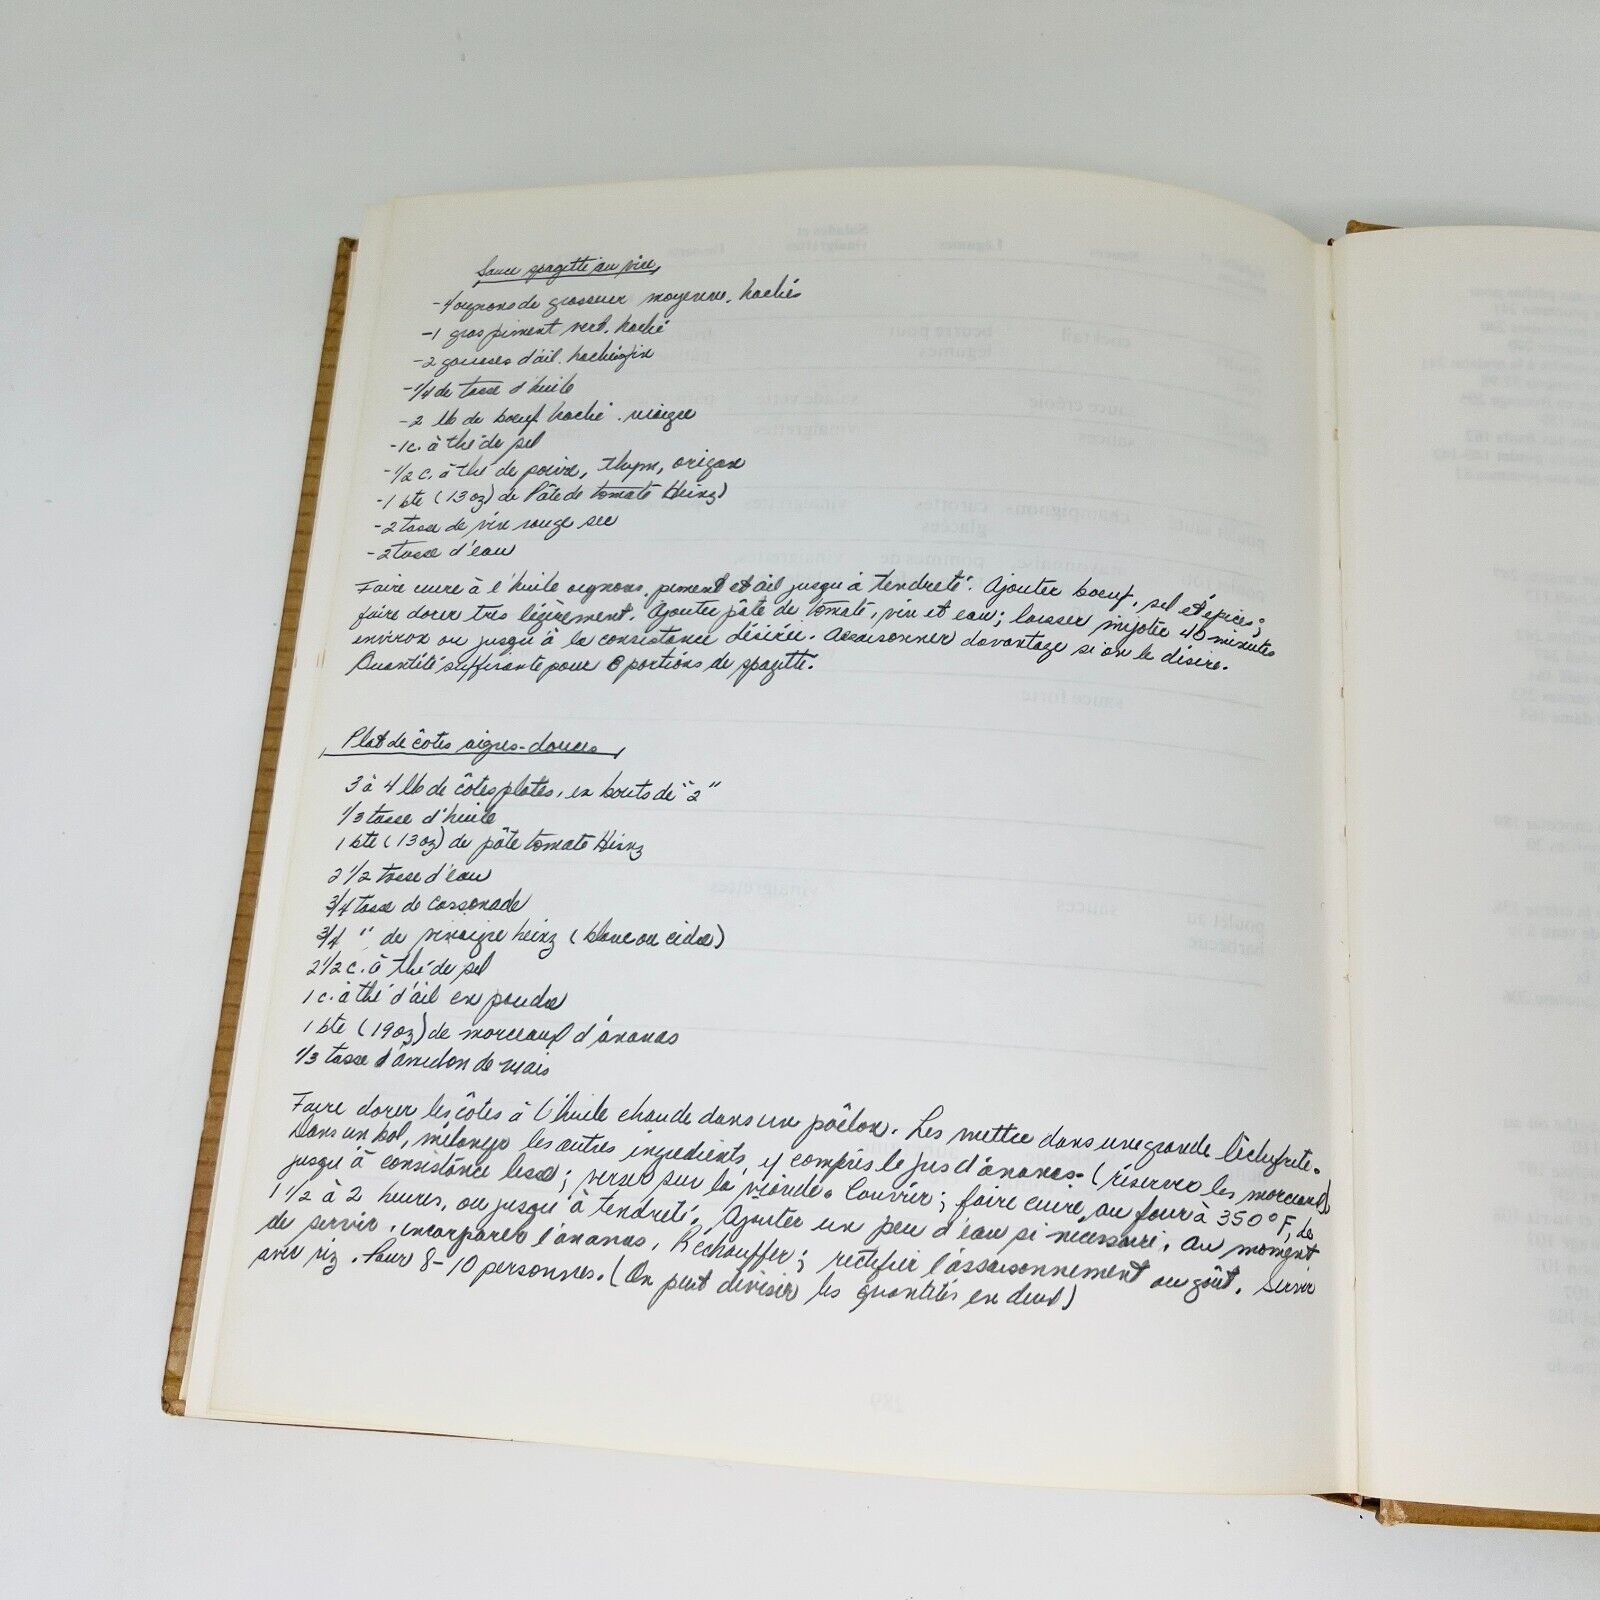 Sauce spagetti au vin
- 4 oignons de grosseur moyenne, hachés
- 1 gros piment vert, haché
- 2 gousses d'ail, hachées fin
- 1/4 de tasse d'huile
- 2 lb de boeuf haché, maigre
- 1 c. à thé de sel
- 1/2 c. à thé de poivre, thym, origan
- 1 bte (13 oz) de Pâte de tomate Heinz
- 2 tasse de vin rouge sec
- 2 tasse d'eau
Faire cuire à l'huile oignons, piment et ail jusqu'à tendreté. Ajouter boeuf, sel et épices;
faire dorer très légèrement. Ajouter pâte de tomate, vin et eau; laisser mijoter 40 minutes
environ ou jusqu'à la consistance désirée. Assaisonner davantage si on le désire.
Quantité suffisante pour 8 portions de spagetti.
Plat de côtes aigres-douces
3 à 4 lb de côtes plates, en bouts de 2"
1/3 tasse d'huile
1 bte (13 oz) de pâte tomate Heinz
2 1/2 tasse d'eau
3/4 tasse de cassonade
3/4 " de vinaigre heinz (blanc ou cidre)
2 1/2 c. à thé de sel
1 c. à thé d'ail en poudre
1 bte (19 oz) de morceaux d'ananas
1/3 tasse d'amidon de maïs
Faire dorer les côtes à l'huile chaude dans un poêlon. Les mettre dans une grande lèchefrite.
Dans un bol, mélanger les autres ingrédients, y compris le jus d'ananas (réserver les morceaux)
jusqu'à consistance lisse; verser sur la viande. Couvrir; faire cuire, au four à 350°F, de
1 1/2 à 2 heures, ou jusqu'à tendreté. Ajouter un peu d'eau si nécessaire. Au moment
de servir, incorporer l'ananas. Réchauffer; rectifier l'assaisonnement au goût. Servir
avec riz. Pour 8-10 personnes. (On peut diviser les quantités en deux)